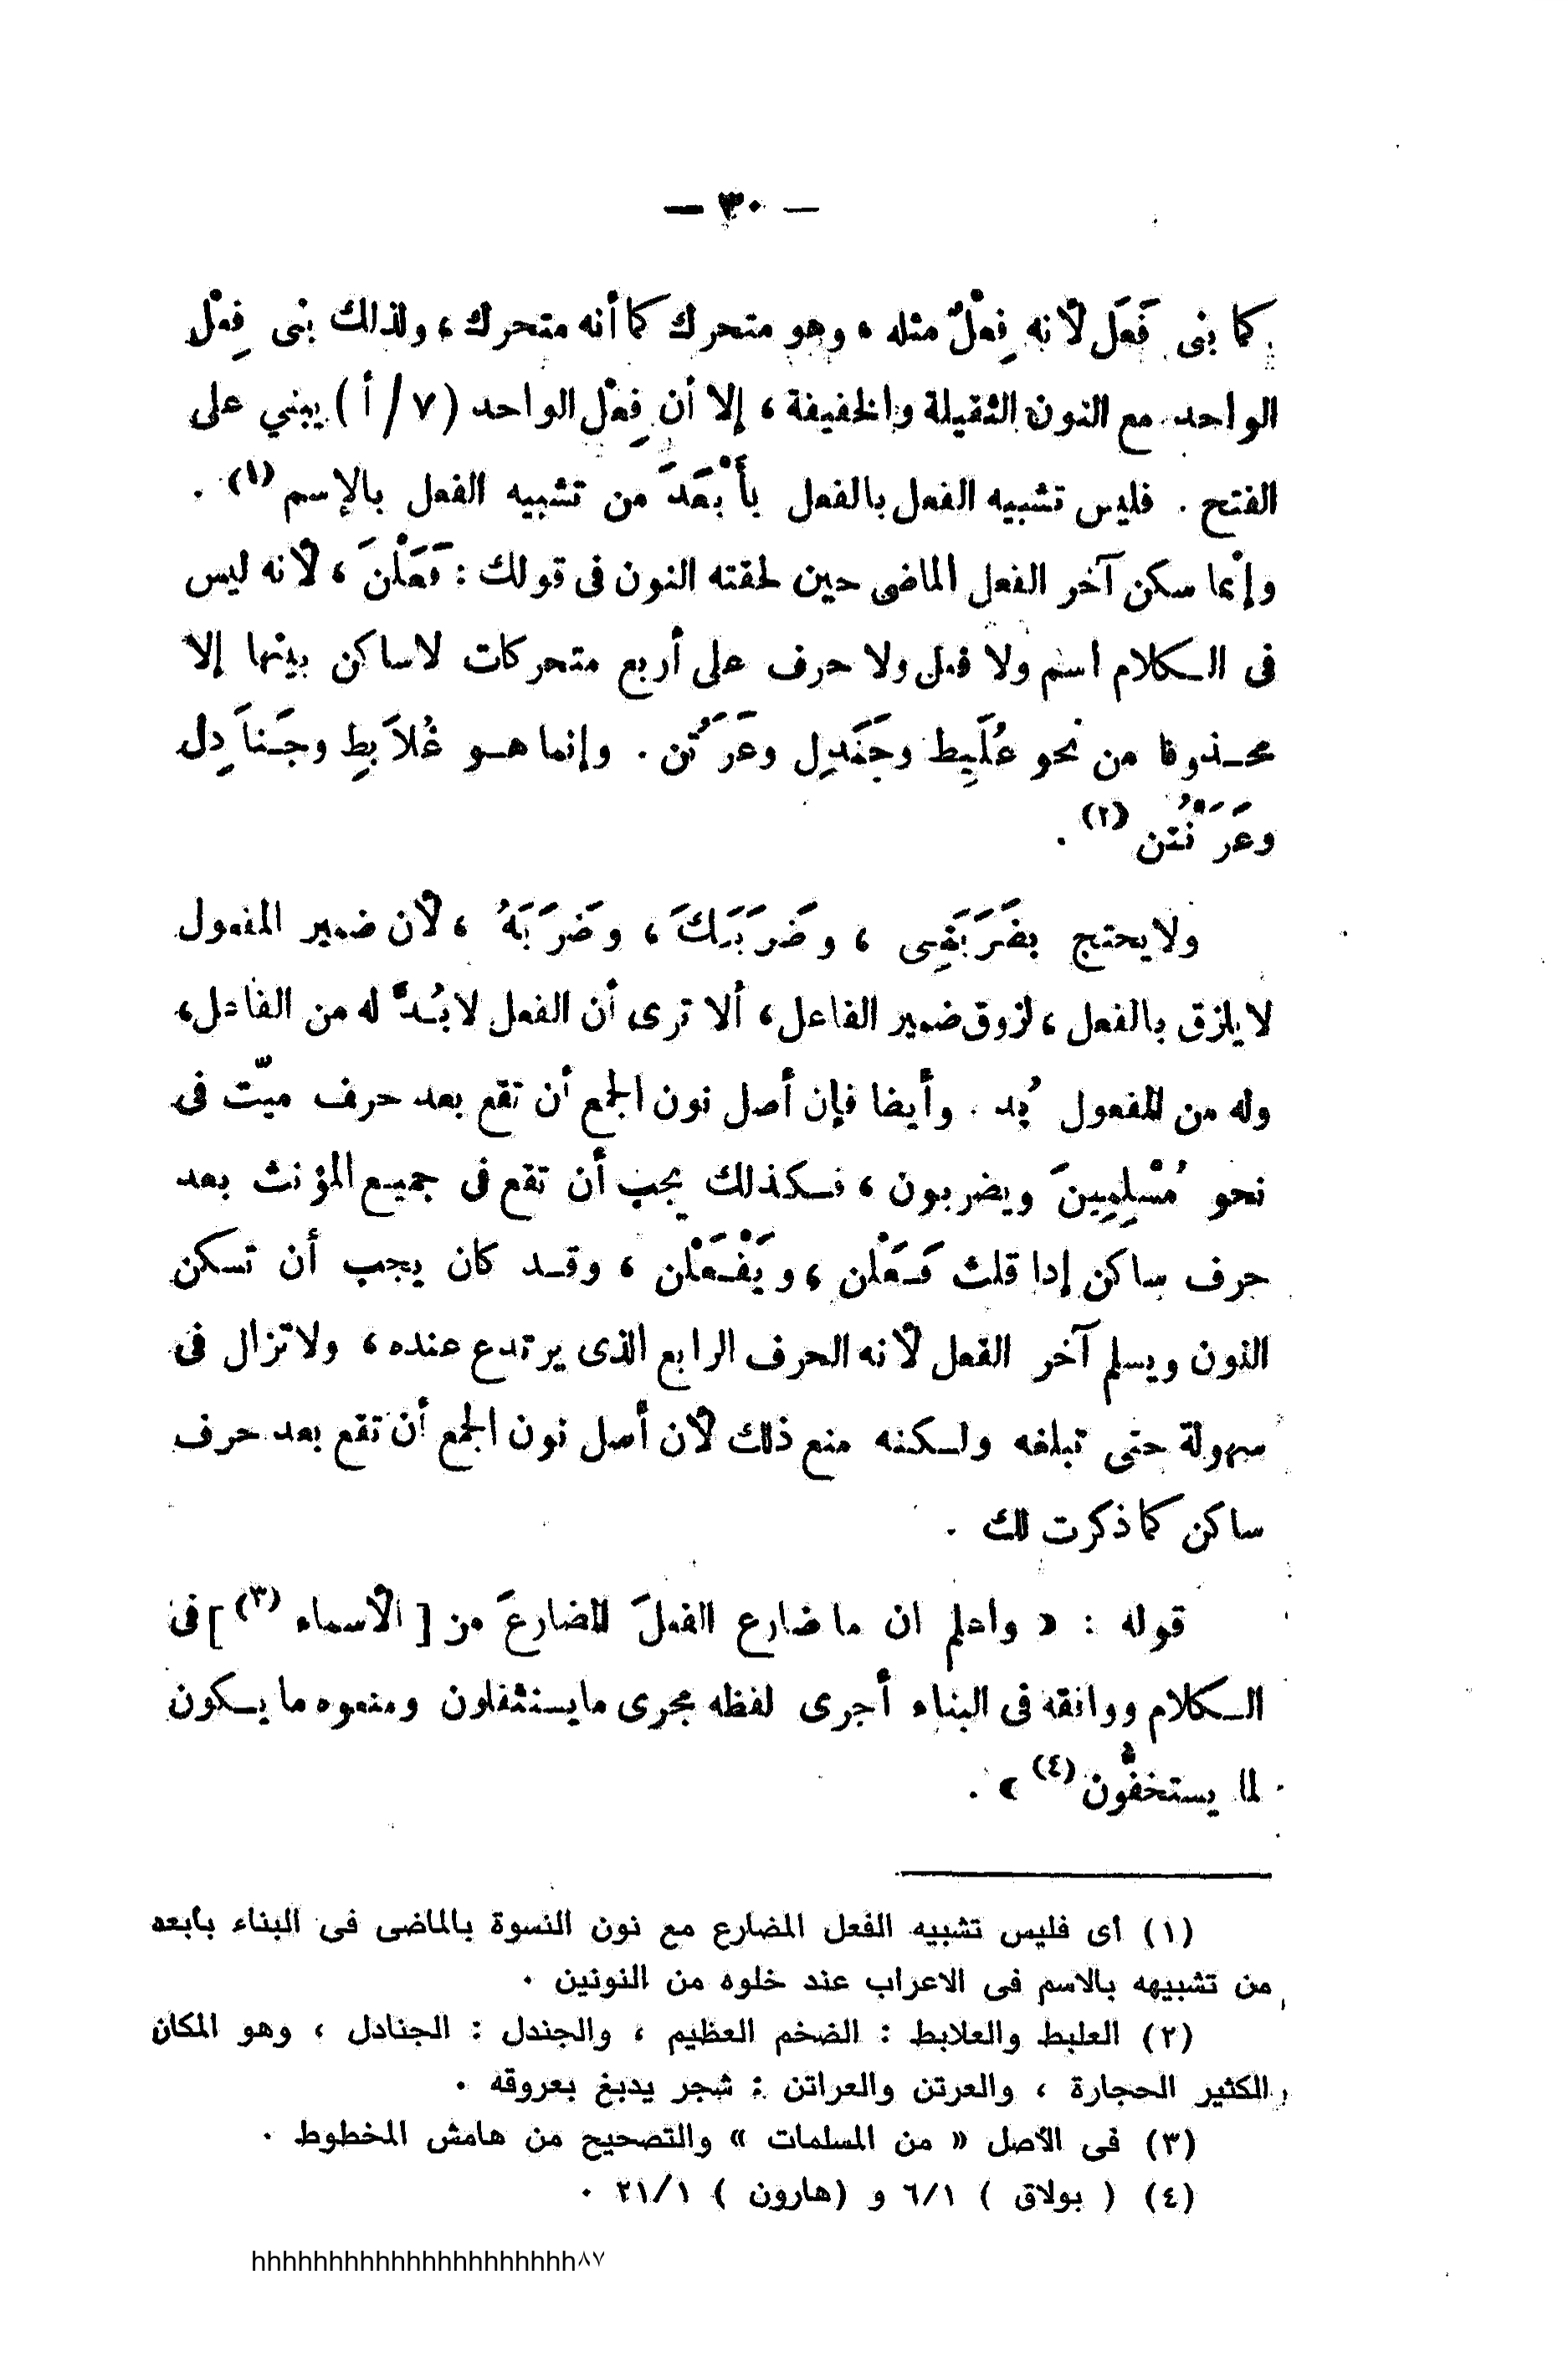 — ٣٠ —
كما بنى فَعَل لأنه فِعْلٌ مثله ، وهو متحرك كما أنه متحرك ، ولذلك بنى فِعْل
الواحد مع النون الثقيلة والخفيفة ، إلا أن فِعْل الواحد (٧/أ) يبني على
الفتح . فليس تشبيه الفعل بالفعل بأَبْعَدَ من تشبيه الفعل بالإسم (١) .
وإنما سكن آخر الفعل الماضى حين لحقته النون فى قولك : فَعَلْنَ ، لأنه ليس
فى الـكلام اسم ولا فعل ولا حرف على أربع متحركات لاساكن بينها إلا
محـذوفا من نحو عُلَبِط وجَنَدِل وعَرَتُن . وإنما هـو عُلاَبِطِ وجَـنَادِل
وعَرَنْتُن (٢) .
ولايحتج بضَرَبَنِى ، وضَرَبَـكَ ، وضَرَبَهُ ، لأن ضمير المفعول
لايلزق بالفعل ، لزوق ضمير الفاعل ، ألا ترى أن الفعل لابُـدَّ له من الفاعل ،
وله من المفعول بُد . وأيضا فإن أصل نون الجمع أن تقع بعد حرف ميّت فى
نحو مُسْلِمِينَ ويضربون ، فـكذلك يجب أن تقع فى جميع المؤنث بعد
حرف ساكن إذا قلت فَـعَلْن ، ويَفْـعَلْن ، وقـد كان يجب أن تسكن
النون ويسلم آخر الفعل لأنه الحرف الرابع الذى يرتدع عنده ، ولاتزال فى
سهولة حتى تبلغه ولـكنه منع ذلك لأن أصل نون الجمع أن تقع بعد حرف
ساكن كما ذكرت لك .
قوله : « واعلم ان ما ضارع الفعلَ المضارعَ من [ الأسماء (٣) ] فى
الـكلام ووافقه فى البناء أجرى لفظه مجرى مايستثقلون ومنعوه مايـكون
لما يستخفُّون (٤) » .
(١) أى فليس تشبيه الفعل المضارع مع نون النسوة بالماضى فى البناء بأبعد
من تشبيهه بالاسم فى الاعراب عند خلوه من النونين .
(٢) العلبط والعلابط : الضخم العظيم ، والجندل : الجنادل ، وهو المكان
الكثير الحجارة ، والعرتن والعراتن : شجر يدبغ بعروقه .
(٣) فى الأصل « من المسلمات » والتصحيح من هامش المخطوط .
(٤) ( بولاق ) ٦/١ و (هارون ) ٢١/١ .
hhhhhhhhhhhhhhhhhhhhh٨٧